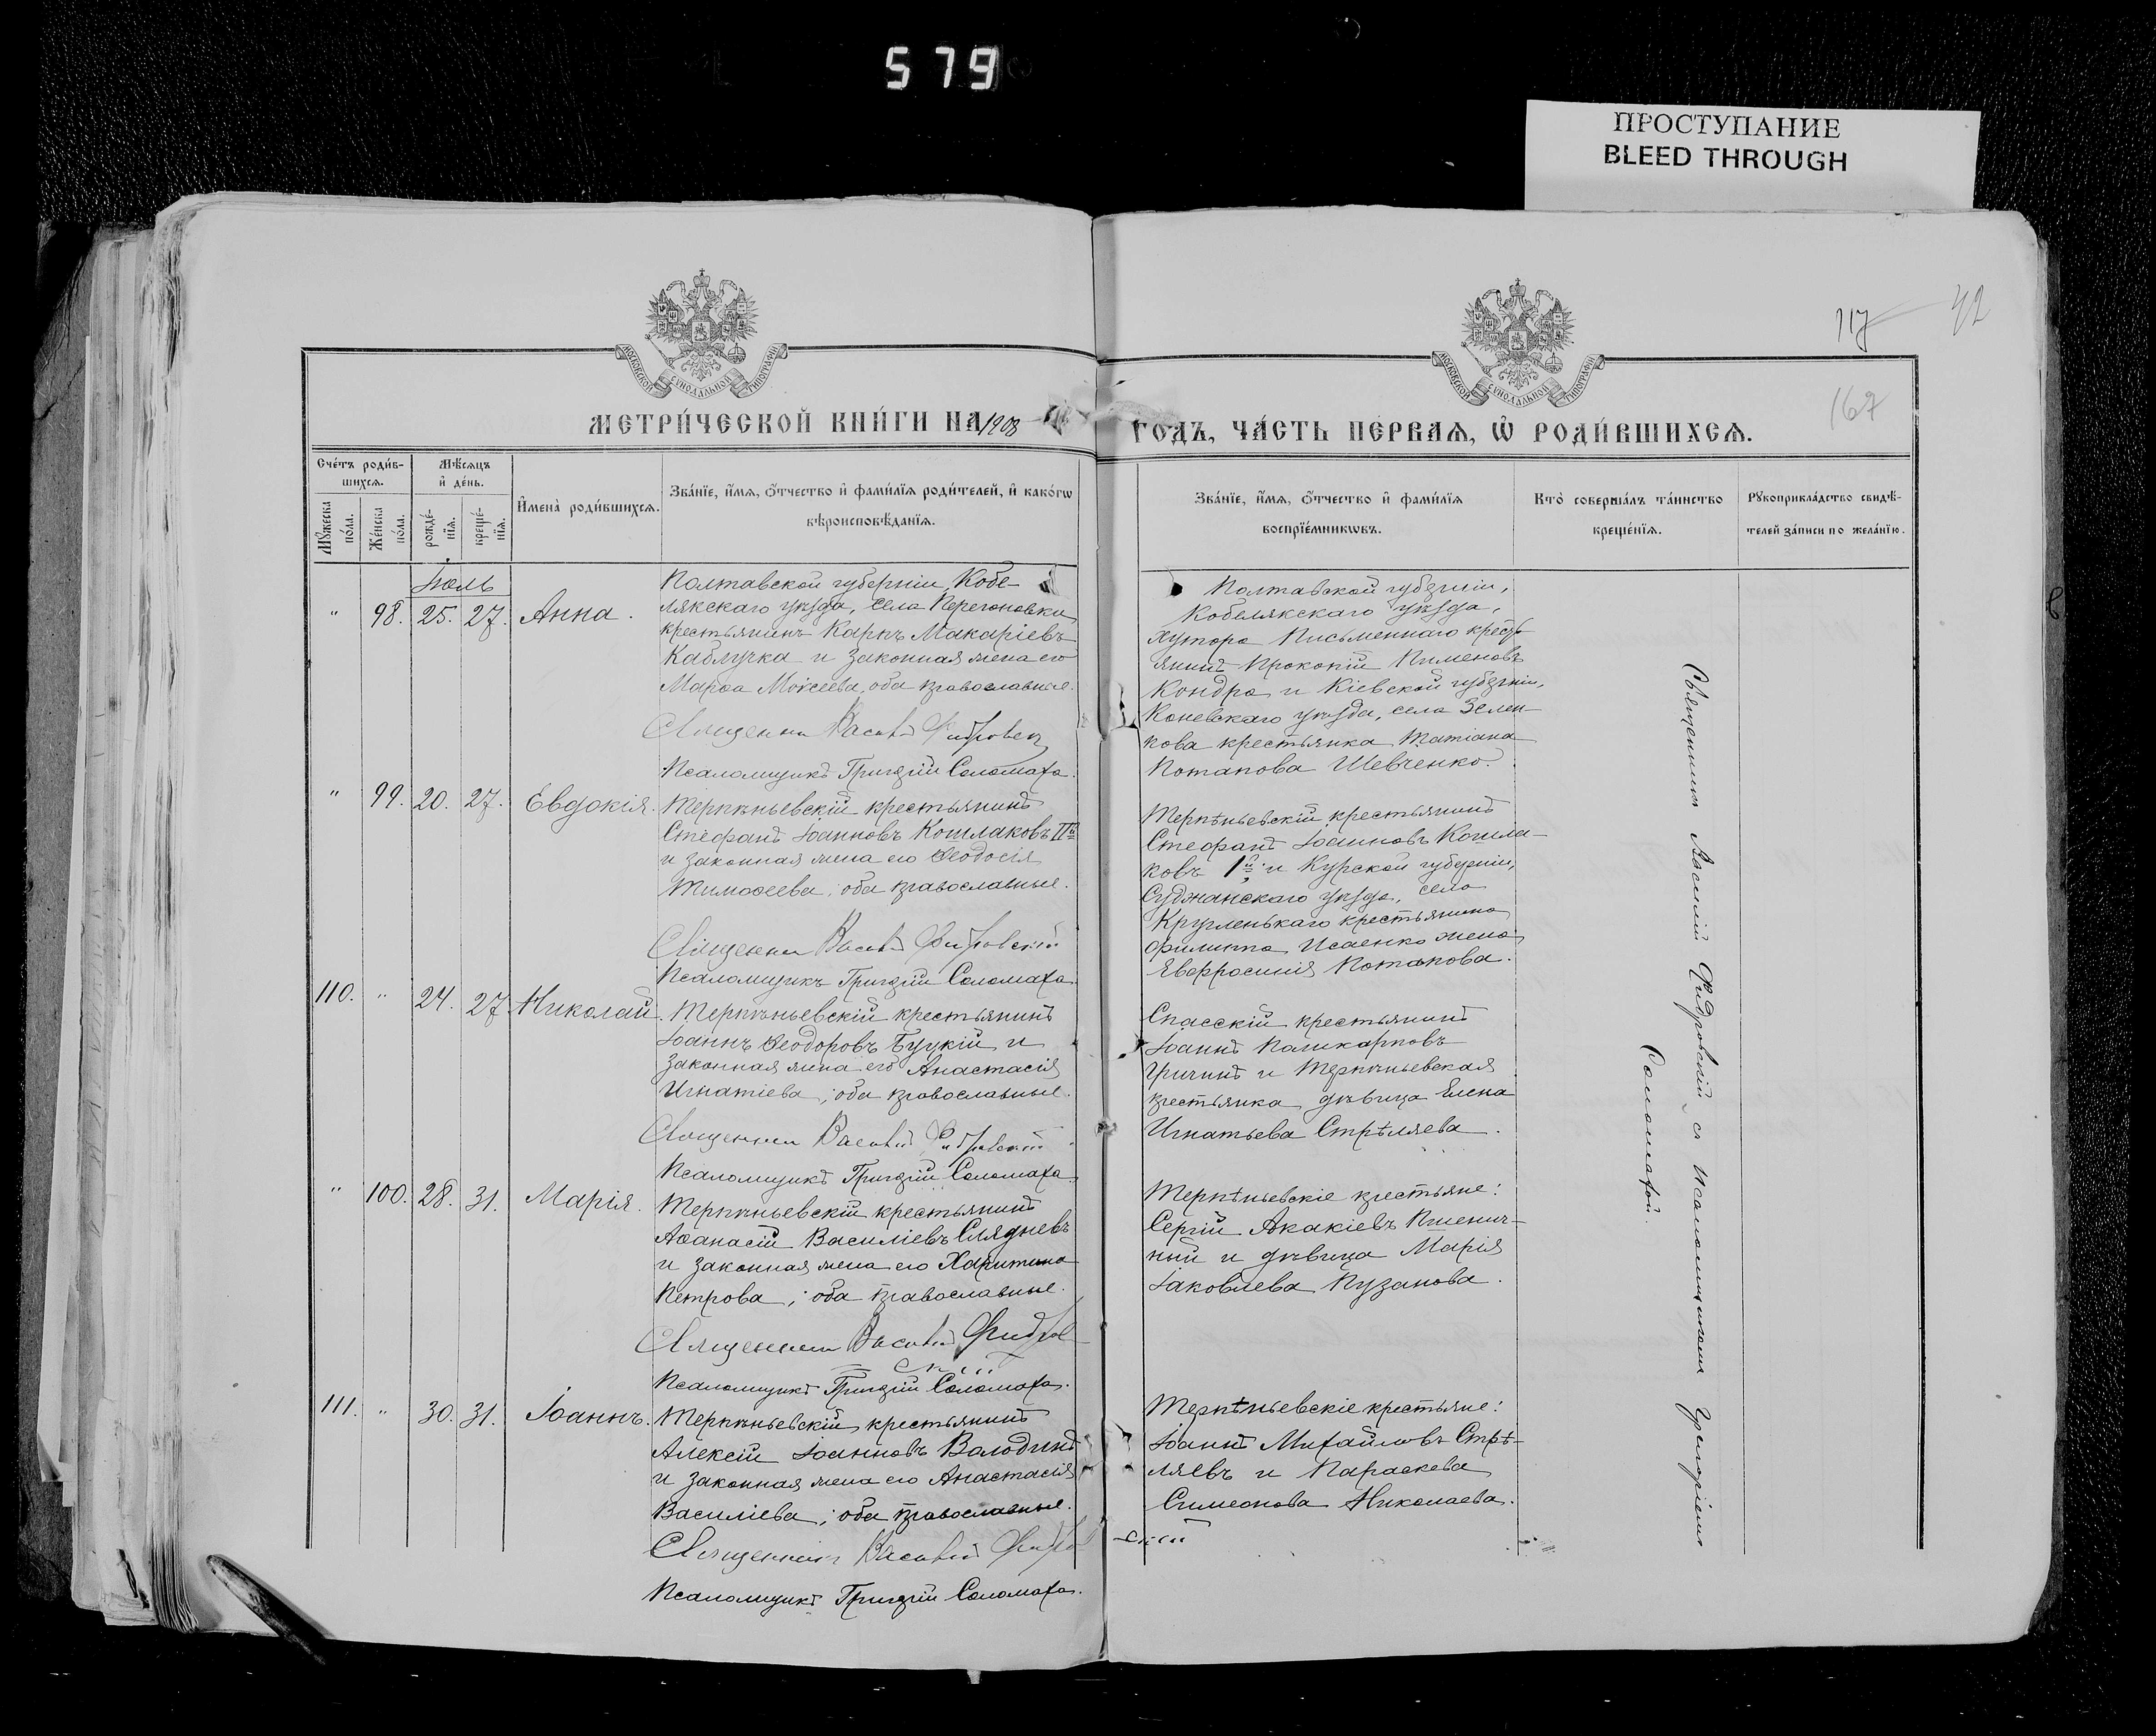 579
ПРОСТУПАНИЕ
BLEED THROUGH
117
42
167
МОСКОВСКОЙ СѴНОДАЛЬНОЙ ТИПОГРАФІИ
МОСКОВСКОЙ СѴНОДАЛЬНОЙ ТИПОГРАФІИ
МЕТРИ́ЧЕСКОЙ КНИ́ГИ НА 1908
ГОДЪ, ЧА́СТЬ ПЕ́РВАЯ, Ѡ҆ РОДИ́ВШИХСЯ.
Сче́тъ роди́в-
шихся.
Мѣ́сяцъ
и҆ де́нь.
Мꙋ́жеска
по́ла.
Же́нска
по́ла.
рожде́-
нїя.
креще́-
нїя.
И҆мена̀ роди́вшихся.
Зва́нїе, и҆́мя, ѻ҆́тчество и҆ фами́лїя роди́телей, и҆ како́гѡ
вѣроисповѣ́данїя.
Зва́нїе, и҆́мя, ѻ҆́тчество и҆ фами́лїя
воспрїе́мникѡвъ.
Кто̀ соверша́лъ та́инство
креще́нїя.
Рꙋкоприкла́дство свидѣ́-
телей за́писи по жела́нїю.
Іюль
" 98. 25. 27. Анна.
Полтавской губерніи, Кобе-
лякскаго уѣзда, села Перегоновки
крестьянинъ Карпъ Макаріевъ
Каблучка и законная жена его
Марѳа Моисеева, оба православные.
Священникъ Василій Фидровскій
Псаломщикъ Григорій Соломаха.
Полтавской губерніи,
Кобелякскаго уѣзда,
хутора Письменнаго кресть
янинъ Прокопій Пименовъ
Кондра и Кіевской губерніи,
Каневскаго уѣзда, села Зелен-
кова крестьянка Татіана
Потапова Шевченко.
" 99. 20. 27. Евдокія.
Терпѣньевскій крестьянинъ
Стефанъ Іоанновъ Кошлаковъ IIй
и законная жена его Ѳеодосія
Тимоѳеева, оба православные.
Священникъ Василій Фидровскій
Псаломщикъ Григорій Соломаха.
Терпѣньевскій крестьянинъ
Стефанъ Іоанновъ Кошла-
ковъ 1й и Курской губерніи,
Суджанскаго уѣзда, села
Кругленькаго крестьянина
Филиппа Исаенко жена
Евфросинія Потапова.
110. " 24. 27. Николай.
Терпѣньевскій крестьянинъ
Іоаннъ Ѳеодоровъ Буцкій и
законная жена его Анастасія
Игнатіева; оба православные.
Священникъ Василій Фидровскій
Псаломщикъ Григорій Соломаха.
Спасскій крестьянинъ
Іоаннъ Поликарповъ
Гричинъ и Терпѣньевская
крестьянка дѣвица Елена
Игнатьева Стрѣляева.
" 100. 28. 31. Марія.
Терпѣньевскій крестьянинъ
Аѳанасій Василіевъ Слядневъ
и законная жена его Харитина
Петрова; оба православные.
Священникъ Василій Фидров
скій
Псаломщикъ Григорій Соломаха.
Терпѣньевскіе крестьяне:
Сергій Акакіевъ Пшенич-
ный и дѣвица Марія
Іаковлева Пузанова.
111. " 30. 31. Іоаннъ.
Терпѣньевскій крестьянинъ
Алексій Іоанновъ Володинъ
и законная жена его Анастасія
Василіева; оба православные.
Священникъ Василій Фидров
скій
Псаломщикъ Григорій Соломаха.
Терпѣньевскіе крестьяне:
Іоаннъ Михайловъ Стрѣ-
ляевъ и Параскева
Симеонова Николаева.
Священникъ Василій Фидровскій съ псаломщикомъ Григоріемъ
Соломахой.